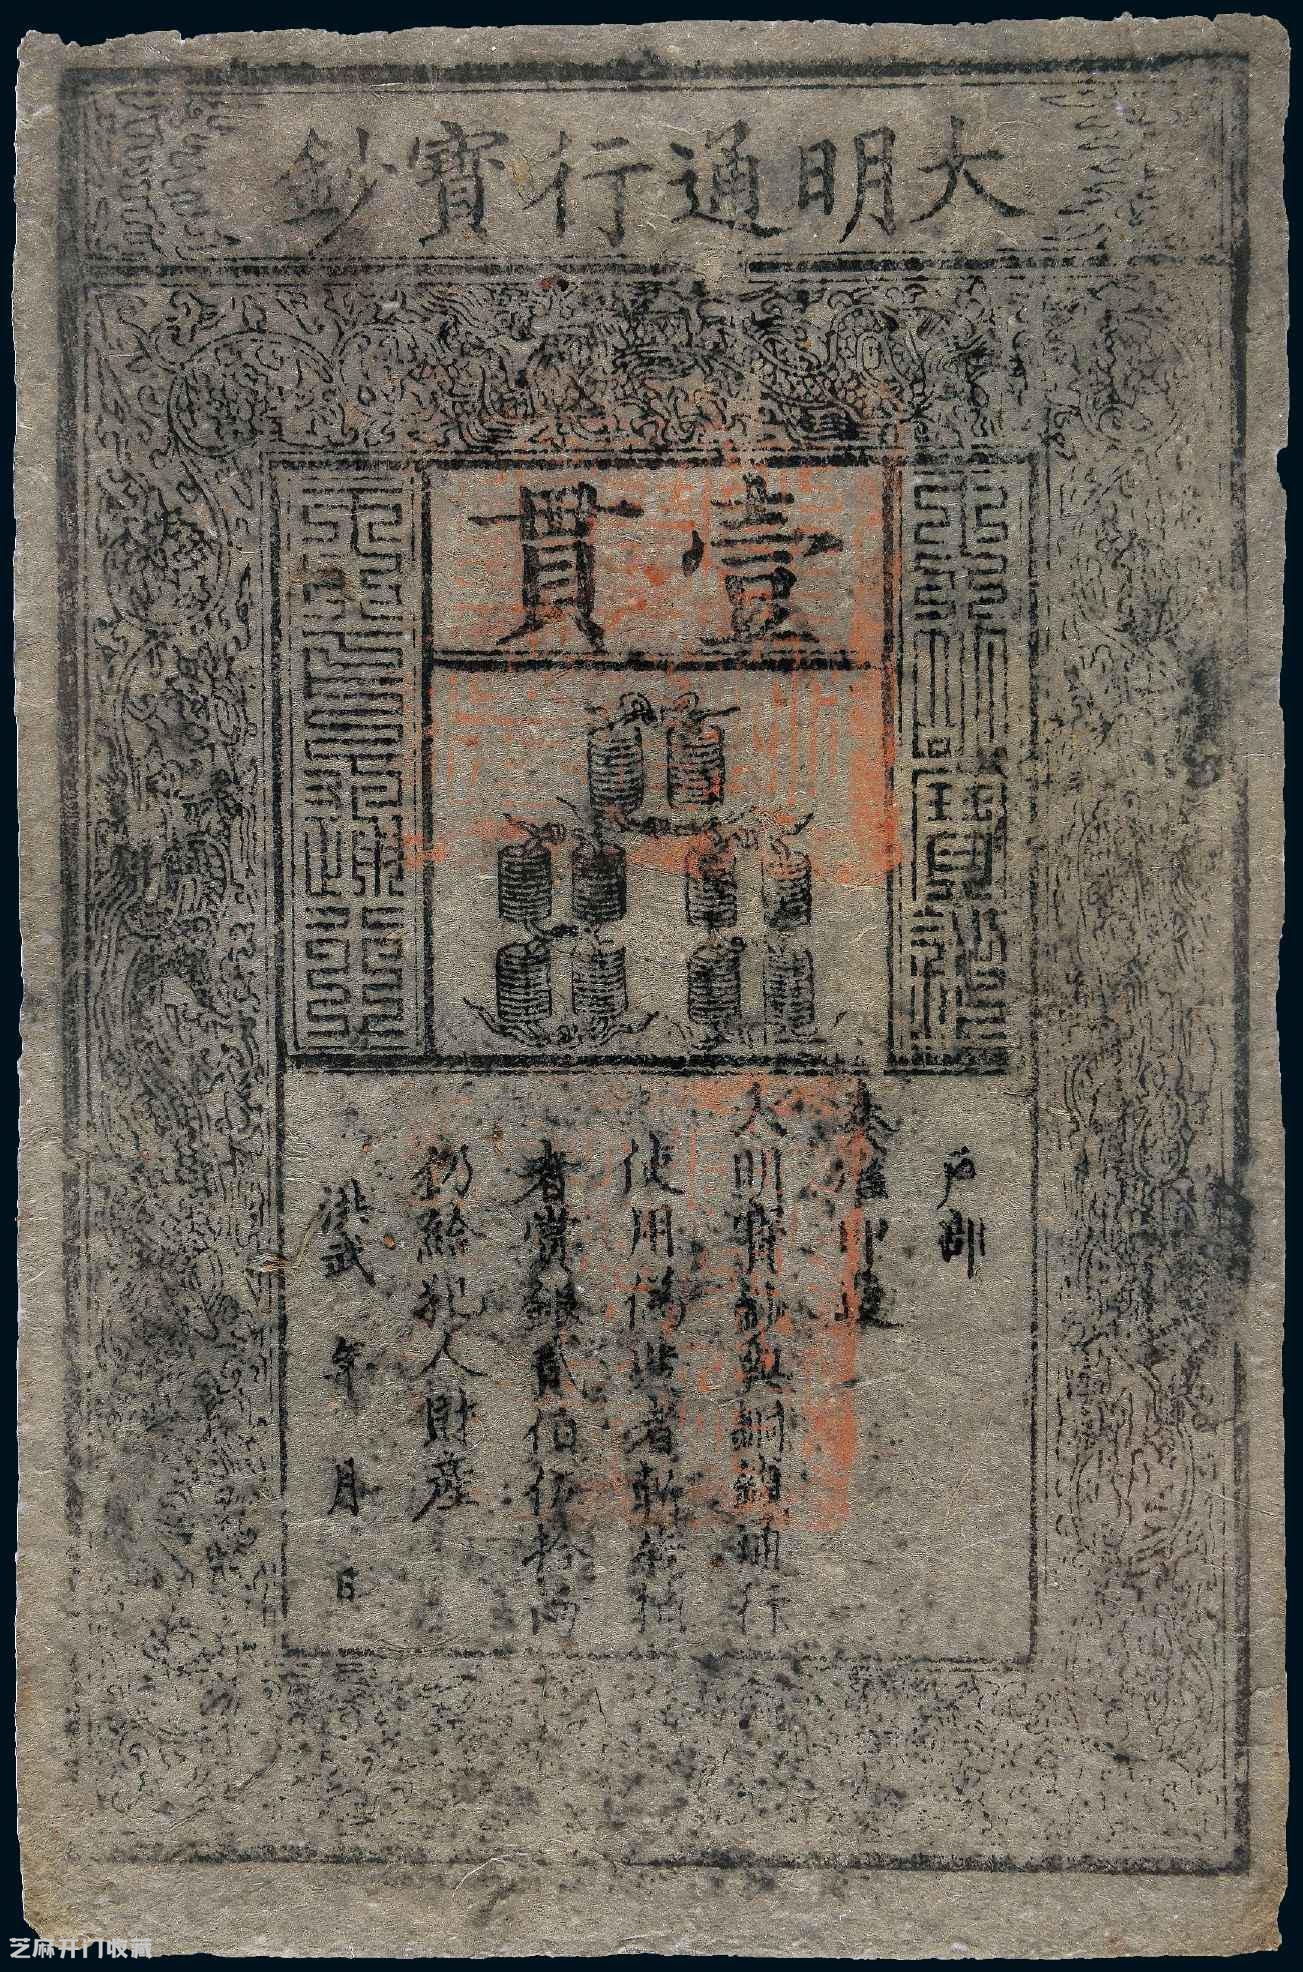 大明通行寶鈔
壹貫
大明寶鈔
天下通行
户部
奏准印造
大明寶鈔與銅錢通行
使用偽造者斬告捕
者賞銀貳伯伍拾兩
仍給犯人財産
洪武 年 月 日
芝麻开门收藏